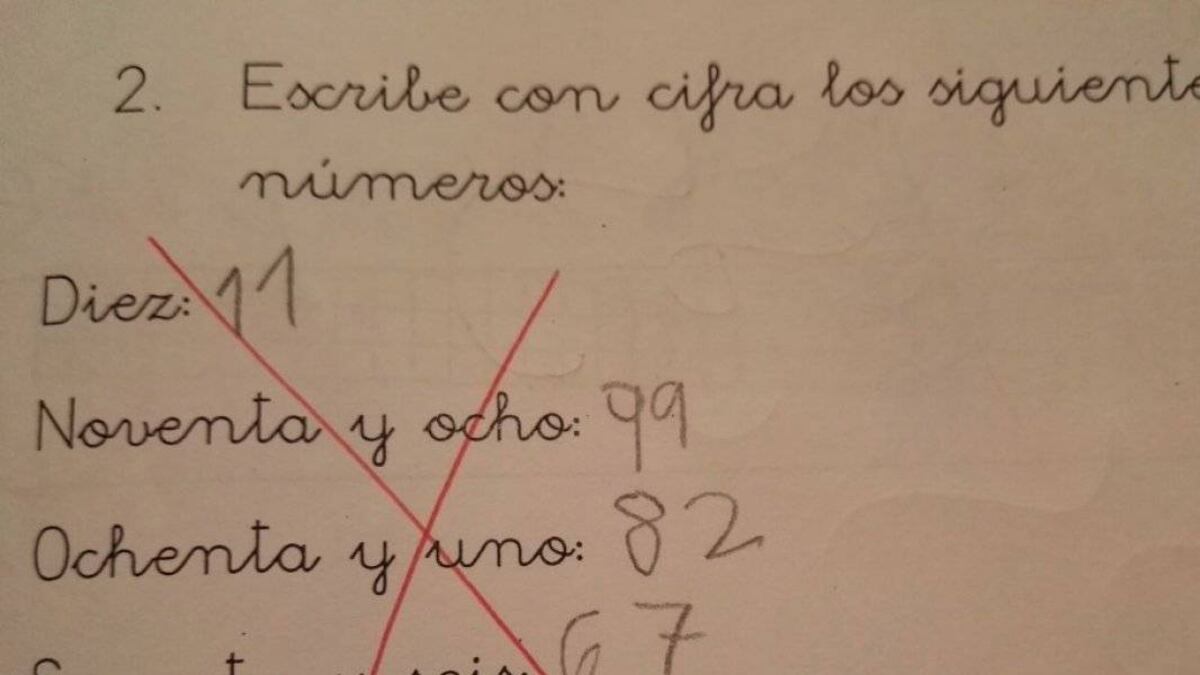 2. Escribe con cifra los siguiente
números:
Diez: 11
Noventa y ocho: 99
Ochenta y uno: 82
67